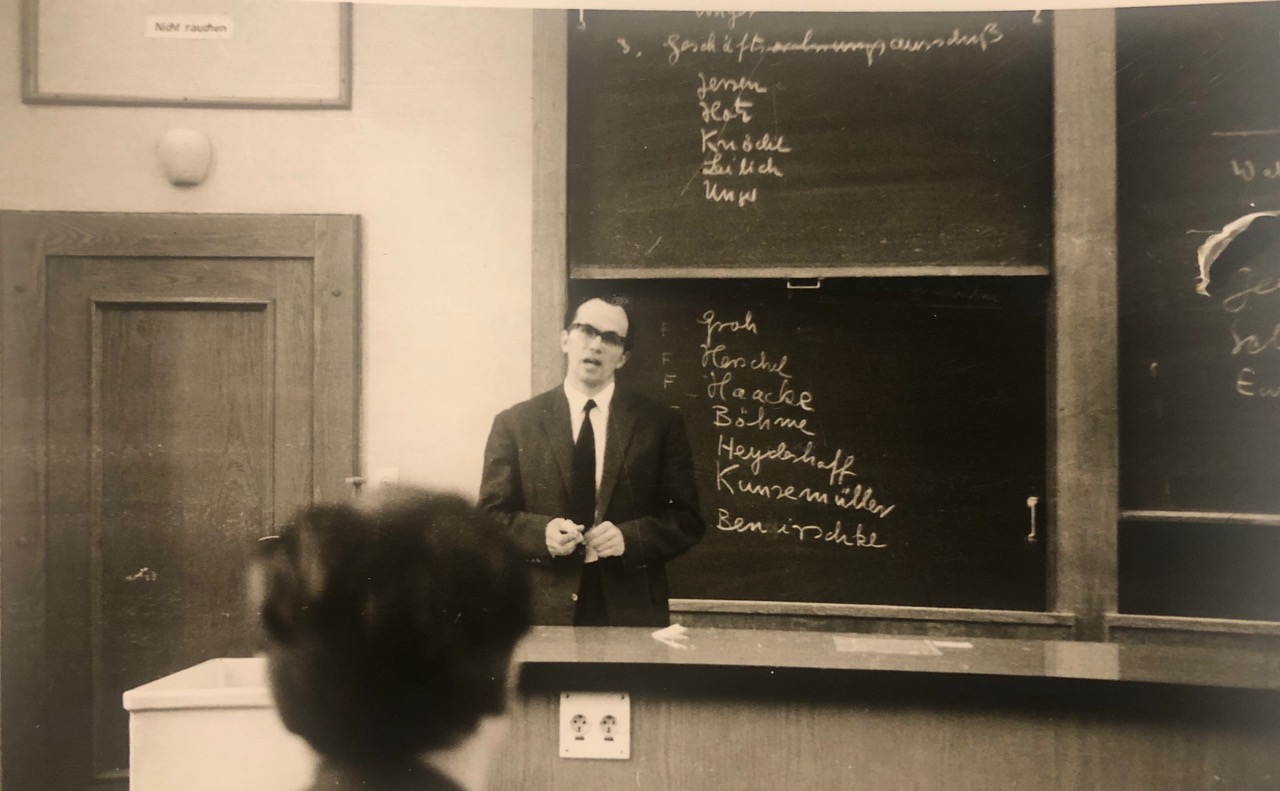 Nicht rauchen
Unger
3. Geschäftsordnungsausschuß
Jensen
Hotz
Knöchel
Leilich
Unger
F Groh
F Herschel
F Haacke
Böhme
Heydenhoff
Kunzemüller
Benirschke